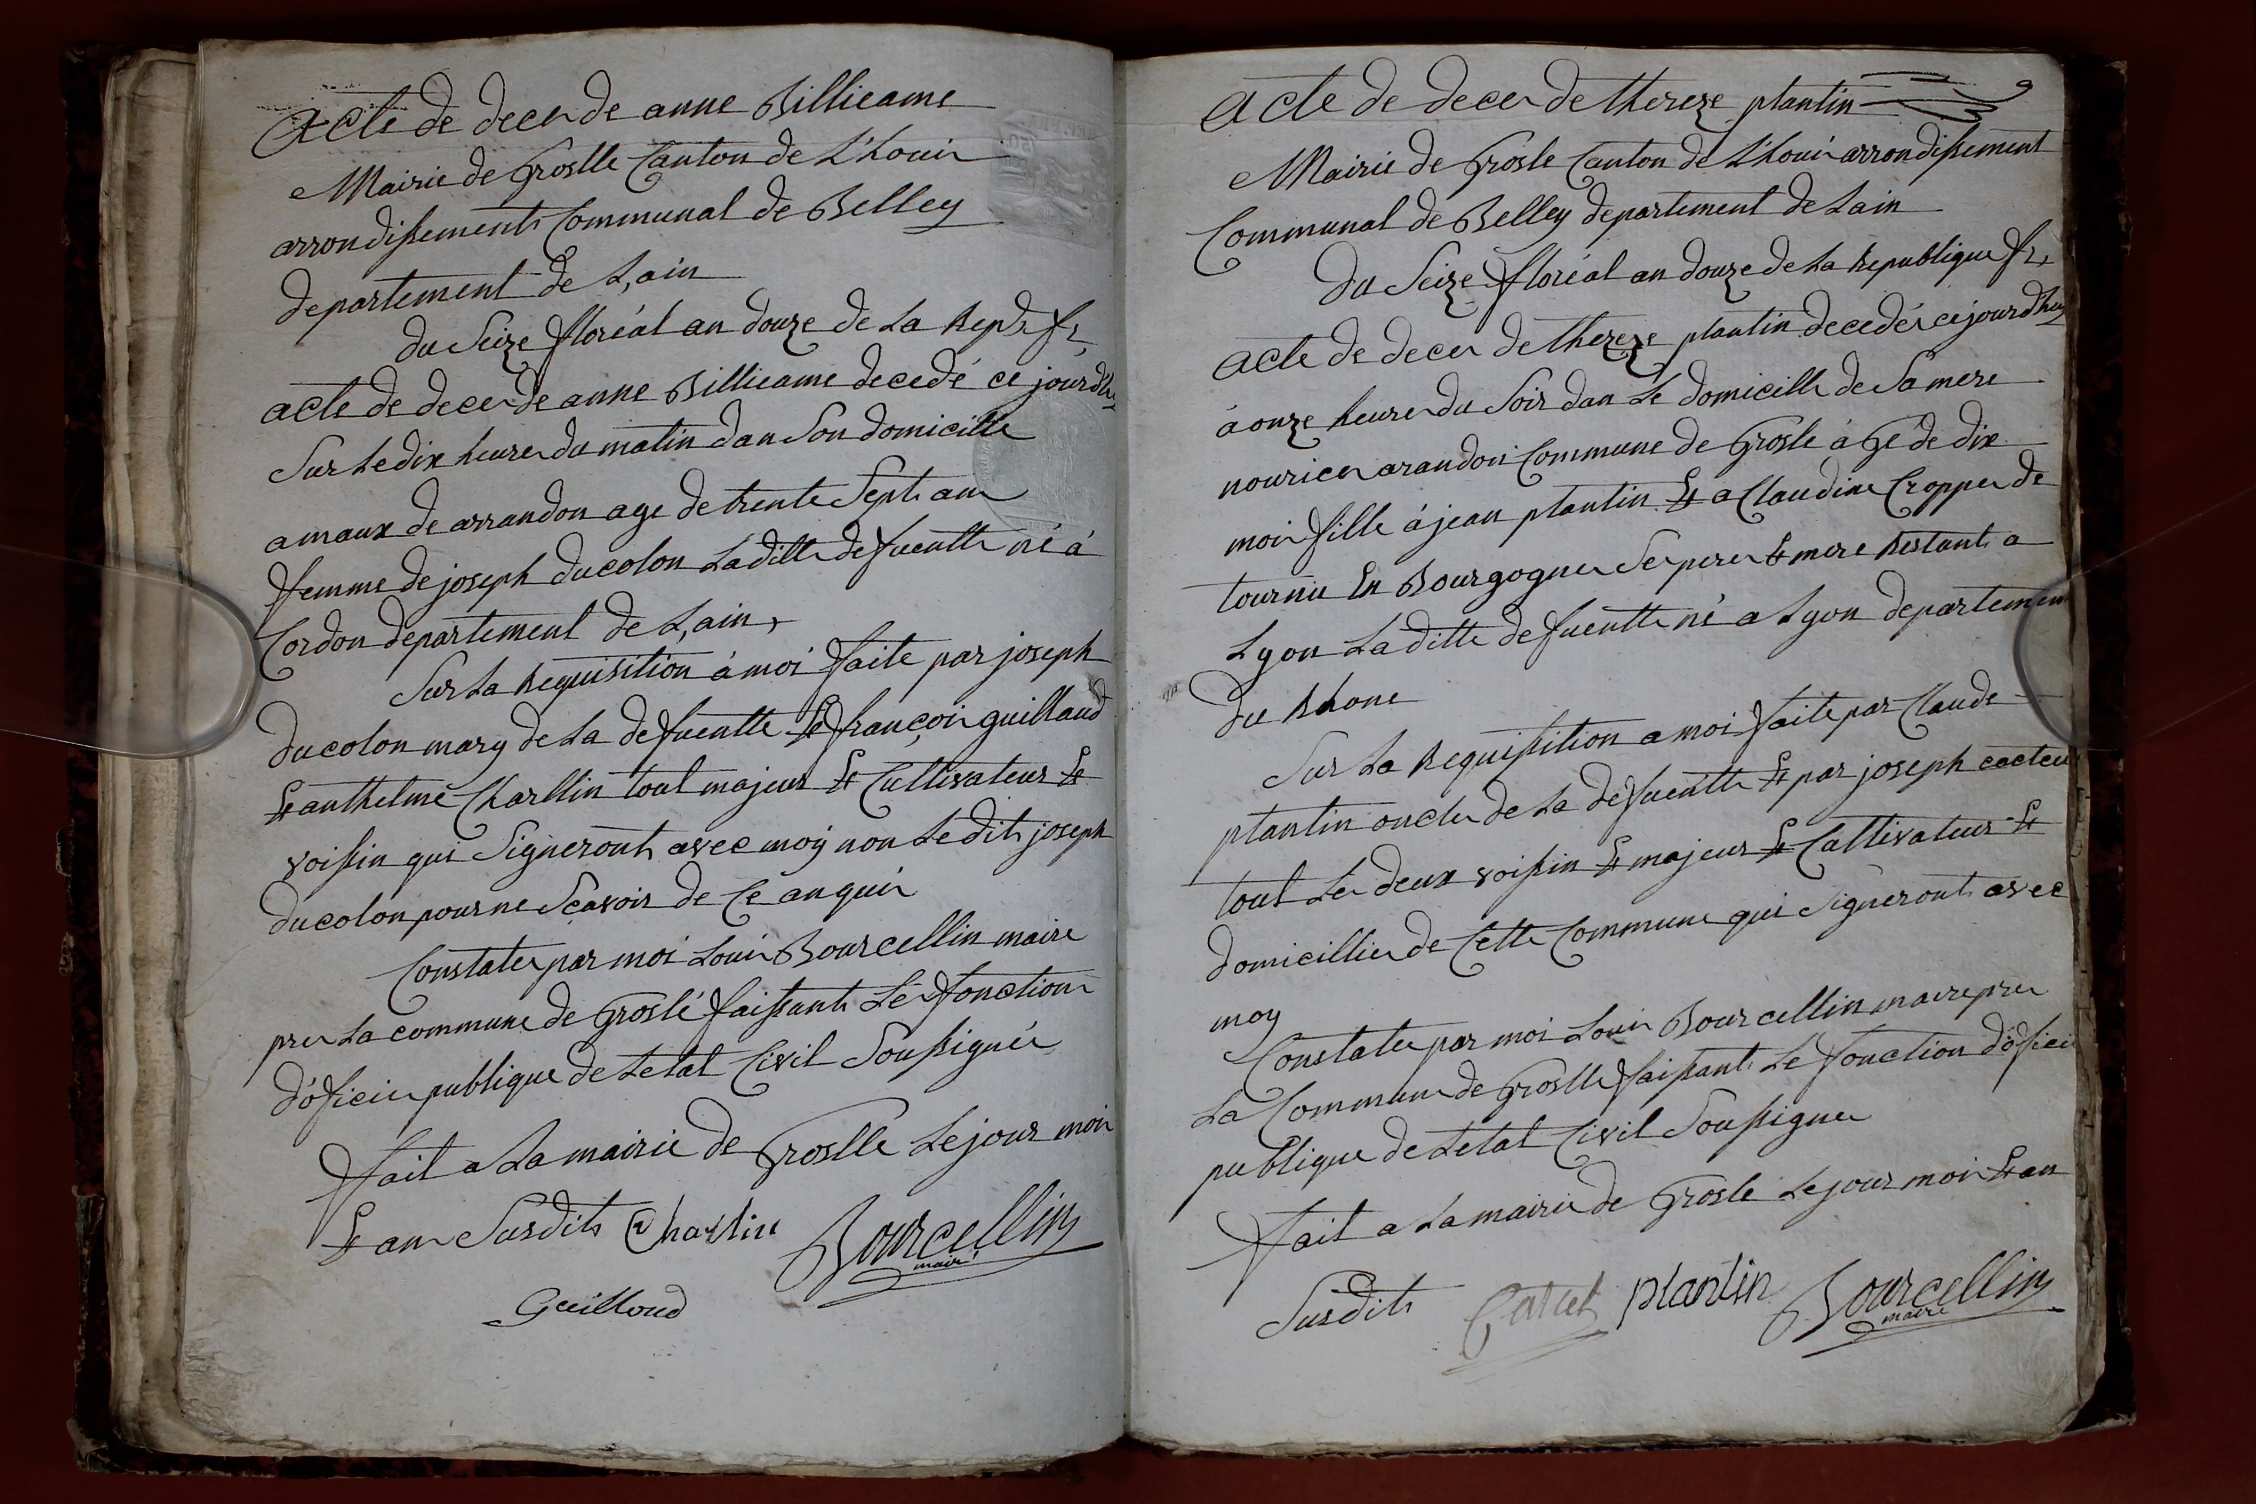 acte de deces de anne Billieame
Mairie de Groslle Canton de L'houis
arrondissement Communal de Belley
departement de L,ain
du Seize floréal an douze de La Rep fr
acte de deces de anne Billieame decedé ce jourdhuy
Sur Le dix heures du matin dans Son domicille
amaux de arrandon age de trente Sept ans
femme de joseph ducolon La ditte defuentte né à
Cordon departement de L,ain,
Sur La Requisition à moi faite par joseph
ducolon mary de La defuentte Et françois guilland
Et anthelme Charllin tout majeur Et Cultivateur Et
voissin qui Signeront avec moy non Le dit joseph
ducolon pour ne Scavoir de Ce anquis
Constater par moi Louis Bourcellin maire
pres La commune de Groslé faissant Lé fonction
d'óficier publique de Letat Civil Soussignér
fait a La mairie de Groslle Le jour mois
Et ans Susdit Charlin Bourcellin
maire
Guilloud
acte de deces de thereze plantin
Mairie de Grosle Canton de L'houis arrondissement
Communal de Belley departement de Lain
du Seize floréal an douze de La Republique fr,
acte de deces de thereze plantin decedér ce jourdhuy
à onze heures du Soir dans Le domicille de Sa mere
nourices arandon Commune de Grosle à Gé de dix
mois fille à jean plantin Et a Claudine Cropper de
tournu En Bourgogne Ses peres Et mere Restant a
Lyon La ditte defuentte né a Lyon departement
du Rhone
Sur La Requissition a moi faite par Claude
plantin oncle de La défuentte Et par joseph
tout Les deux voissin Et majeur Et Cultivateur Et
domicillier de Cette Commune qui Signeront avec
moy
Constater par moi Louis Bourcellin maire pres
La Commune de Groslle faissant Le fonction d'óficier
publique de Letat Civil Soussigner
fait a La mairie de Grosle Le jour mois Et an
Susdit plantin Bourcellin
maire